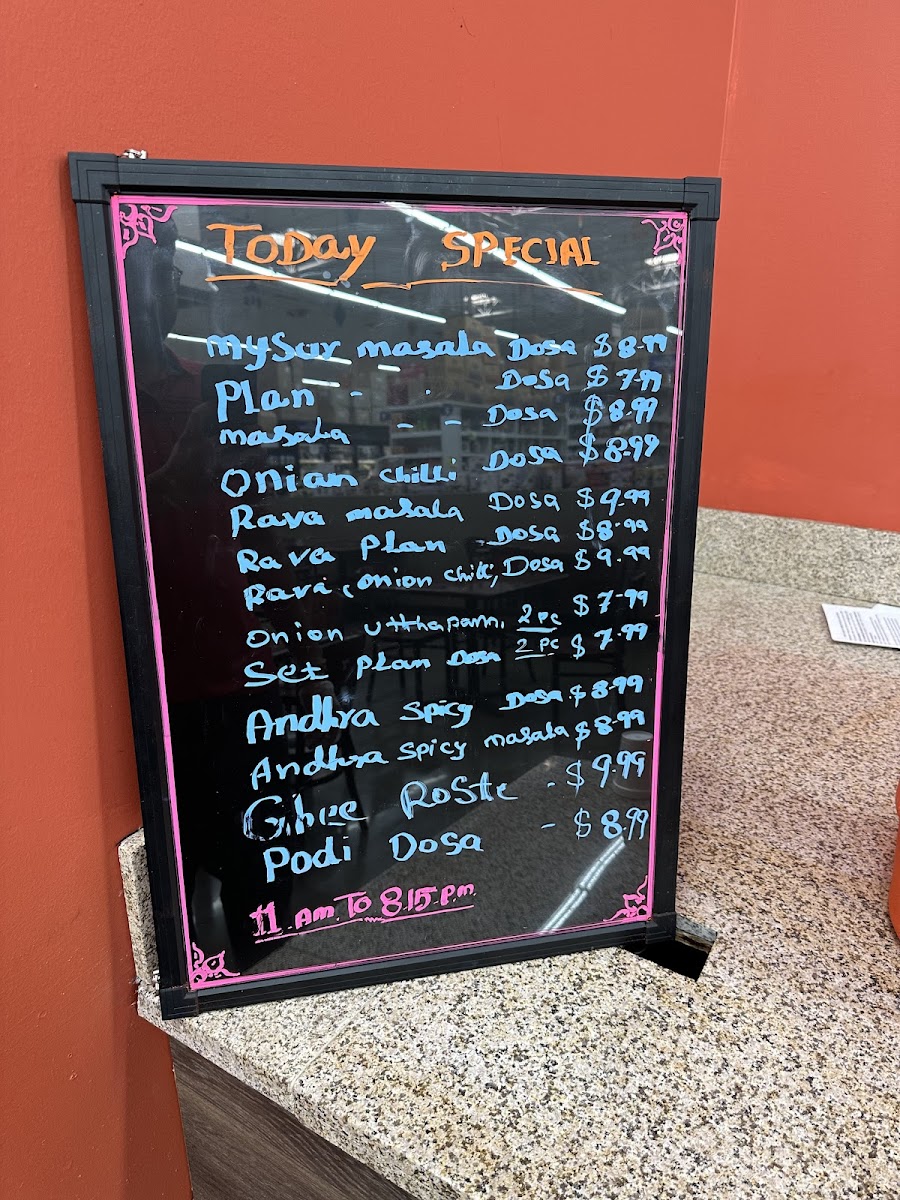 TODAY SPECIAL
mysur masala Dosa $8.99
Plan - - Dosa $7.99
masala - - Dosa $8.99
Onian chilli Dosa $8.99
Rava masala Dosa $9.99
Rava Plan Dosa $8.99
Rava, onion chilli, Dosa $9.99
onion utthapam, 2 PC $7.99
Set plan Dosa 2 PC $7.99
Andhra spicy Dosa $8.99
Andhra spicy masala $8.99
Ghee Roste - $9.99
Podi Dosa - $8.99
11 Am To 8.15 p.m.